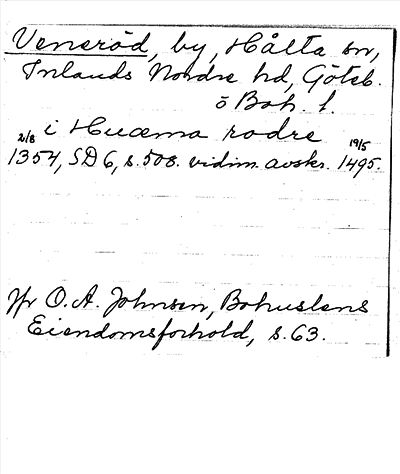 Venseröd, by, Hålta sn,
Inlands Nordre hd, Göteb.
o Boh. l.
i Huæma rodre
2/8 1354, SD 6, s. 508. vidim. avskr. 19/5 1495.
Jfr O. A. Johnsen, Bohuslens
Eiendomsforhold, s. 63.